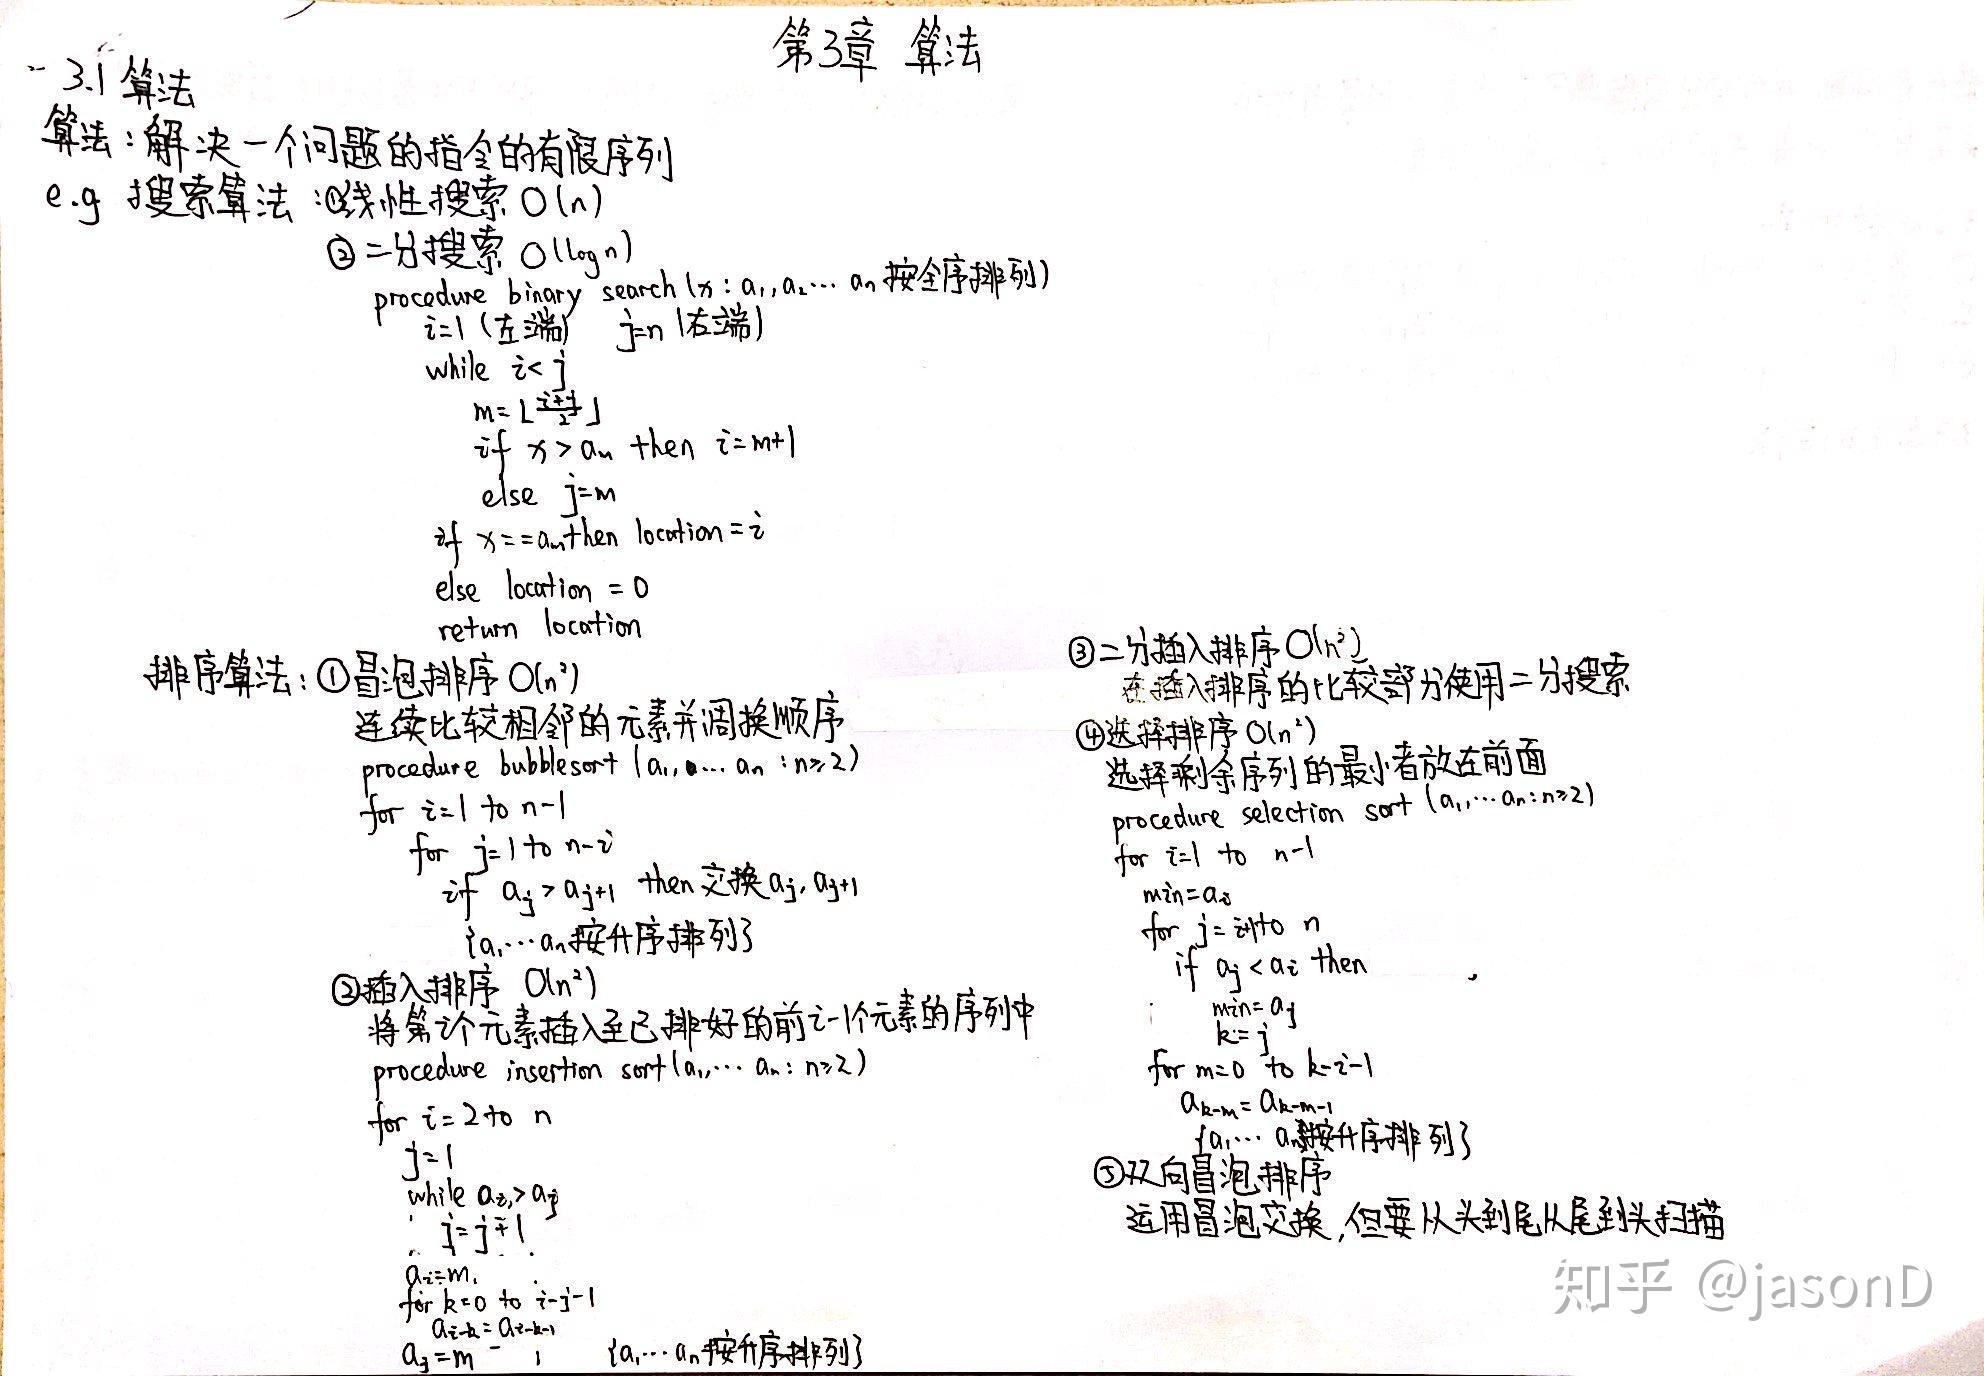 第3章 算法
3.1 算法
算法：解决一个问题的指令的有限序列
e.g 搜索算法：①线性搜索 O(n)
②二分搜索 O(logn)
procedure binary search(x: a₁,a₂…aₙ按全序排列)
i=1 (左端) j=n (右端)
while i<j
m=⌊(i+j)/2⌋
if x>aₘ then i=m+1
else j=m
if x==aₘ then location=i
else location=0
return location
排序算法：①冒泡排序 O(n²)
连续比较相邻的元素并调换顺序
procedure bubblesort (a₁,…aₙ:n≥2)
for i=1 to n-1
for j=1 to n-i
if aⱼ>aⱼ₊₁ then 交换aⱼ,aⱼ₊₁
{a₁…aₙ按升序排列}
②插入排序 O(n²)
将第i个元素插入至已排好的前i-1个元素的序列中
procedure insertion sort(a₁,…aₙ:n≥2)
for i=2 to n
j=1
while aᵢ>aⱼ
j=j+1
aᵢ=m
for k=0 to i-j-1
aᵢ₋ₖ=aᵢ₋ₖ₋₁
aⱼ=m {a₁…aₙ按升序排列}
③二分插入排序 O(n²)
在插入排序的比较部分使用二分搜索
④选择排序 O(n²)
选择剩余序列的最小者放在前面
procedure selection sort (a₁,…aₙ:n≥2)
for i=1 to n-1
min=aᵢ
for j=i+1 to n
if aⱼ<aᵢ then
min=aⱼ
k=j
for m=0 to k-i-1
aₖ₋ₘ=aₖ₋ₘ₋₁
{a₁…aₙ按升序排列}
⑤双向冒泡排序
运用冒泡交换,但要从头到尾从尾到头扫描
知乎 @jasonD